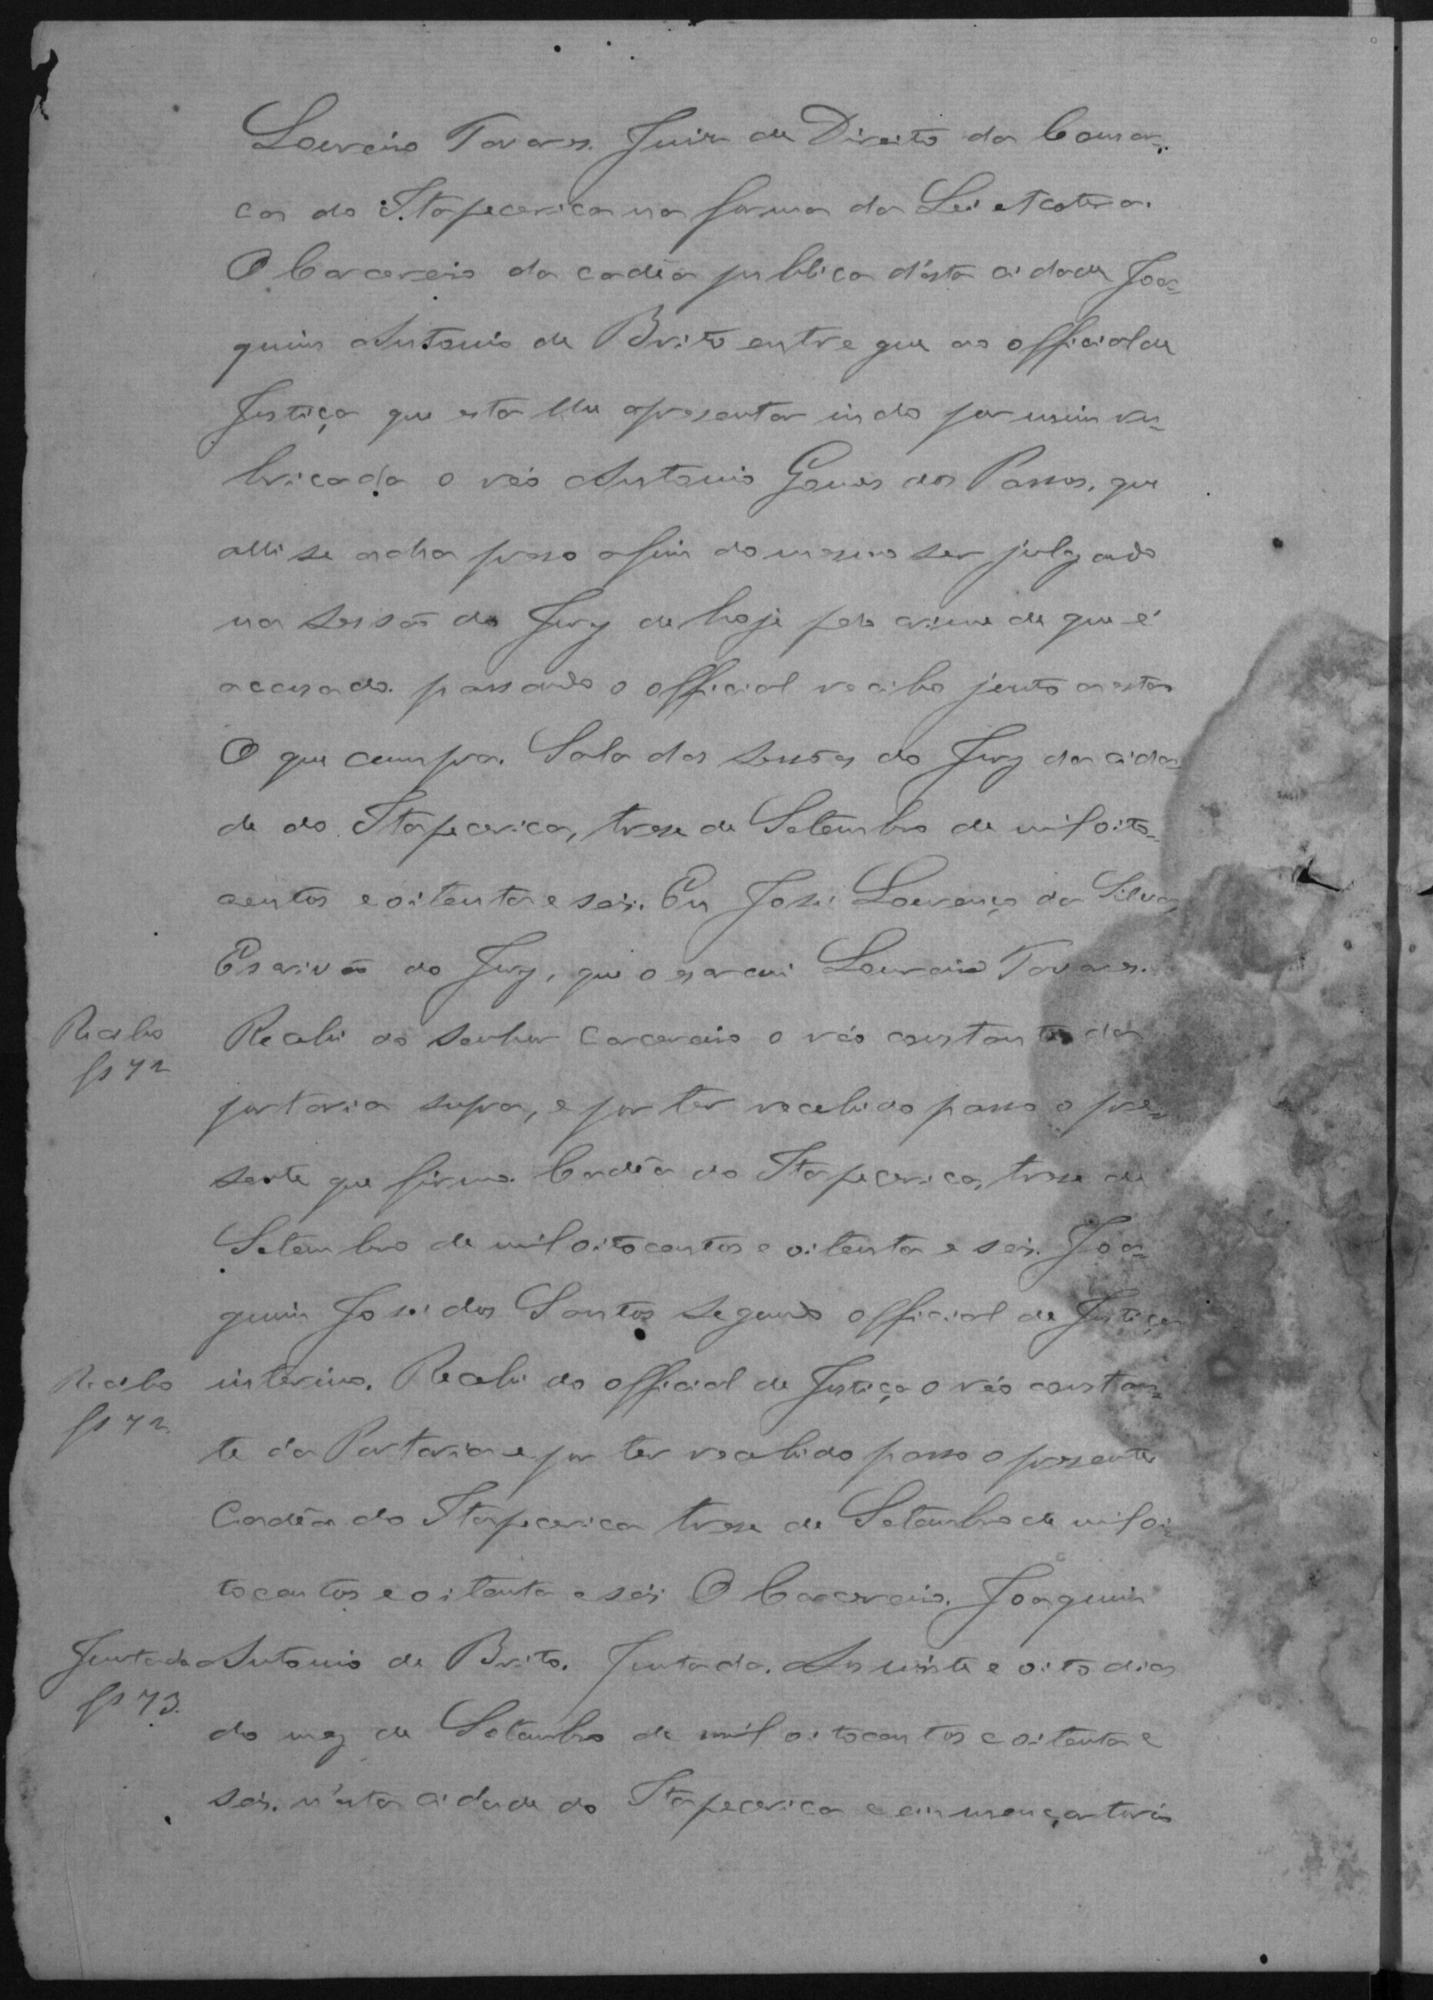 Loureiro Tavares. Juiz de Direito da Comar-
ca do Itapecerica na forma da Lei etcetera.
O Carcereiro da cadêa publica d'esta cidade Joa-
quim Antonio de Brito entregue ao official de
Justiça que esta lhe apresentar indo por mim ru-
bricada o réo Antonio Gomes dos Passos, que
alli se acha preso afim do mesmo ser julgado
na sessão do Jury de hoje pelo crime de que é
accusado. passando o official recibo junto a esta
O que cumpra. Sala das sessões do Jury da cida-
de do Itapecerica, trese de Setembro de mil oito-
centos e oitenta e seis. Eu José Lourenço da Silva,
Escrivão do Jury, que o escrevi Loureiro Tavares.
Recibo
fs 72
Recebi do senhor Carcereiro o réo constante da
portaria supra, e por ter recebido passo o pre-
sente que firmo. Cadêa do Itapecerica, trese de
Setembro de mil oitocentos e oitenta e seis. Joa-
quim José dos Santos segundo official de Justiça
Recibo
fs 72.
interino. Recebi do official de Justiça o réo constan-
te da Portaria e por ter recebido passo o presente
Cadêa do Itapecerica trese de Setembro de mil oi-
tocentos e oitenta e seis O Carcereiro. Joaquim
Juntada
fs 73.
Antonio de Brito. Juntada. Aos vinte e oito dias
do mez de Setembro de mil oitocentos e oitenta e
seis. n'esta cidade do Itapecerica e em meu cartorio